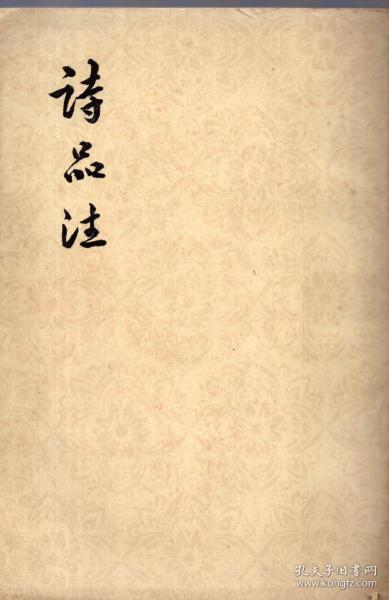 詩品注
孔夫子旧书网
www.kongfz.com